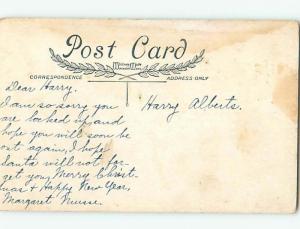 Post Card
CORRESPONDENCE
ADDRESS ONLY
Dear Harry.
I am so sorry you
are locked up and
hope you will soon be
out again, I hope
Santa will not for-
get you, Merry Christ-
mas & Happy New Year,
Margaret
Harry Alberts.